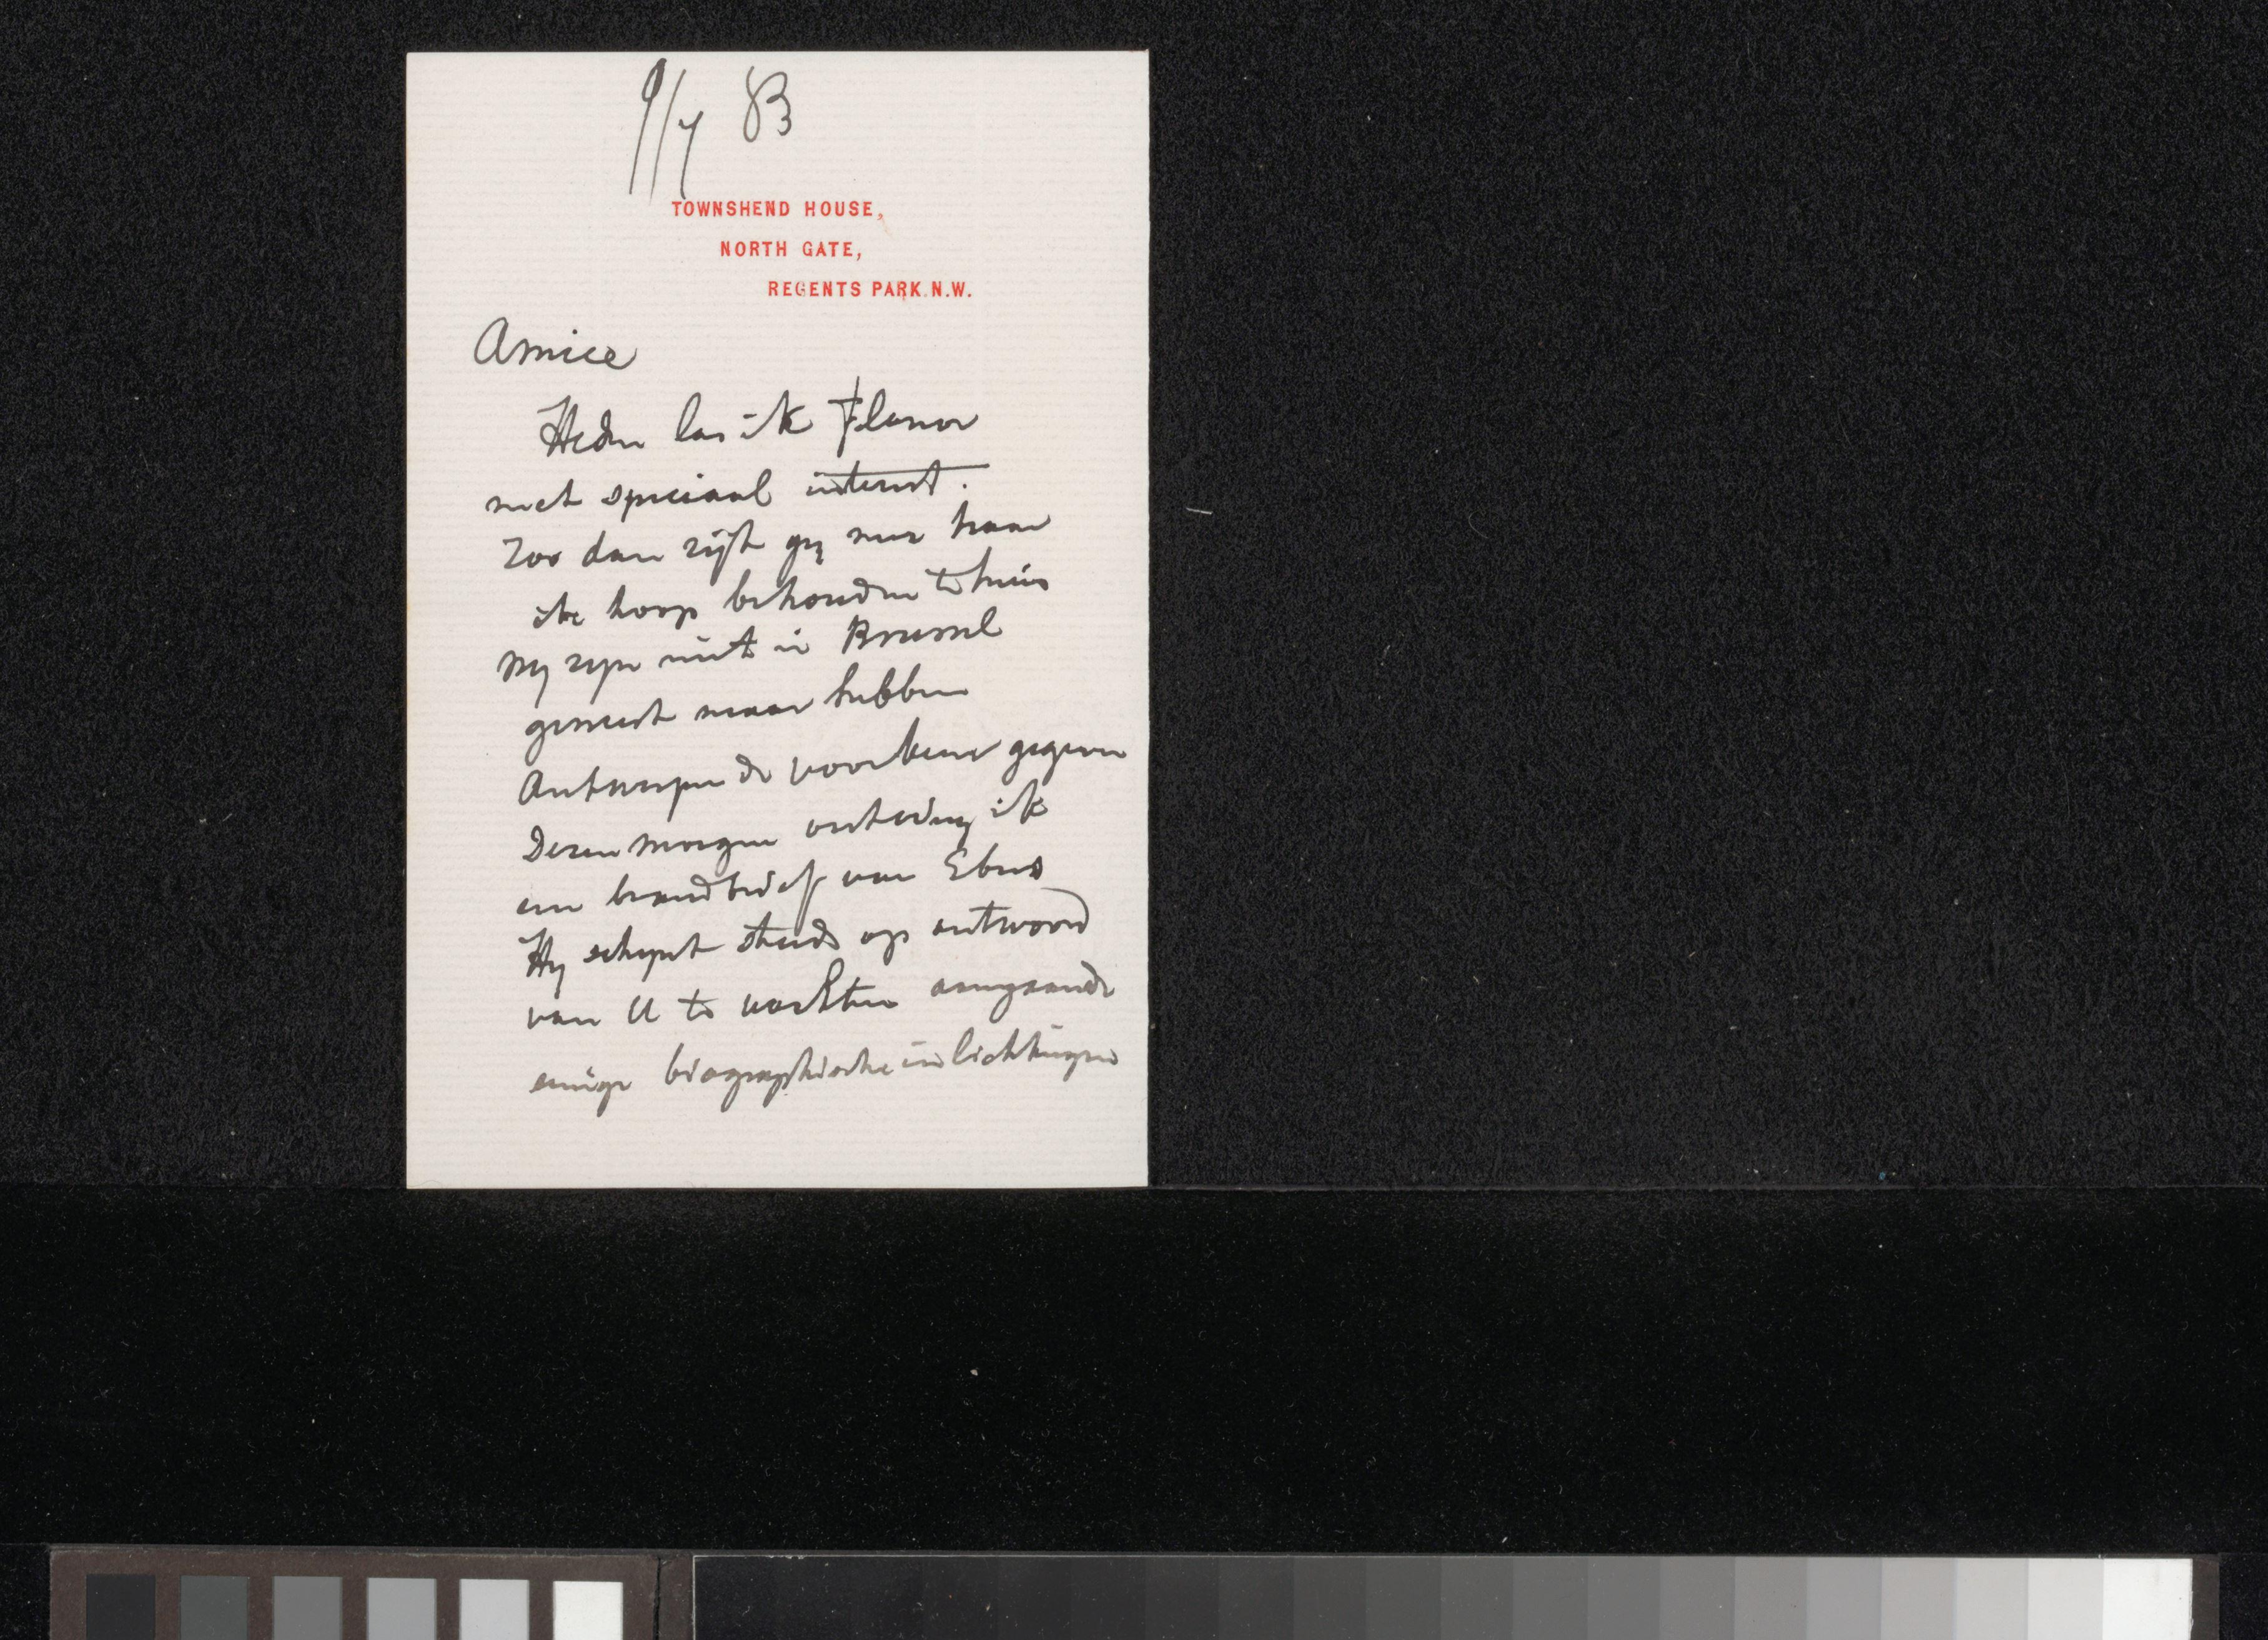 9/7 83
TOWNSHEND HOUSE,
NORTH GATE,
REGENTS PARK.N.W.
Amice
Heden las ik Flanor
met speciaal interest.
Zoo dan zijt gij mer haar
ik hoop behouden te huis
Wy zyn niet in Brussel
geweest maar hebben
Antwerpen de voorkeur gegeven
Dezen morgen ontving ik
een brandbrief van Ebers
Hy schynt steeds op antwoord
van U te wachten aangaande
eenige biographische inlichtingen